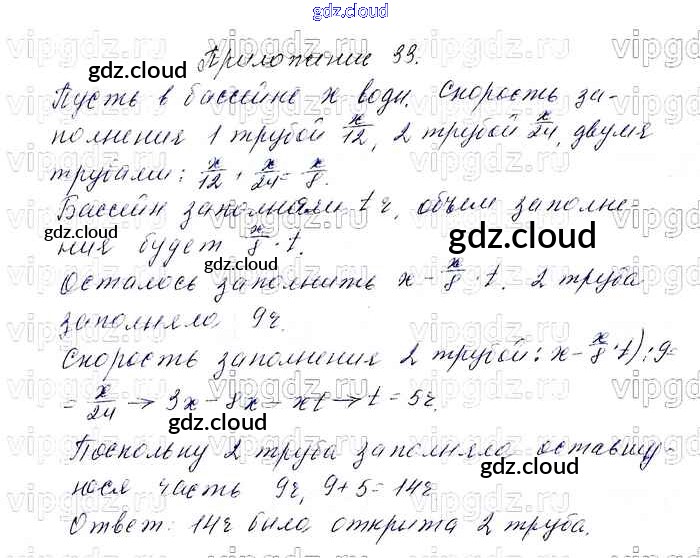 gdz.cloud
Приложение 33.
Пусть в бассейне x воды. Скорость за-
полнения 1 трубой x/12, 2 трубой x/24, двумя
трубами: x/12 + x/24 = x/8.
Бассейн заполняли t ч, объем заполне-
ния будет x/8 · t.
Осталось заполнить x - x/8 · t. 2 труба
заполняла 9 ч.
Скорость заполнения 2 трубой: x - x/8 · t) : 9 =
= x/24 → 3x = 8x - xt → t = 5 ч.
Поскольку 2 труба заполняла оставшу-
юся часть 9 ч, 9 + 5 = 14 ч
Ответ: 14 ч была открыта 2 труба.